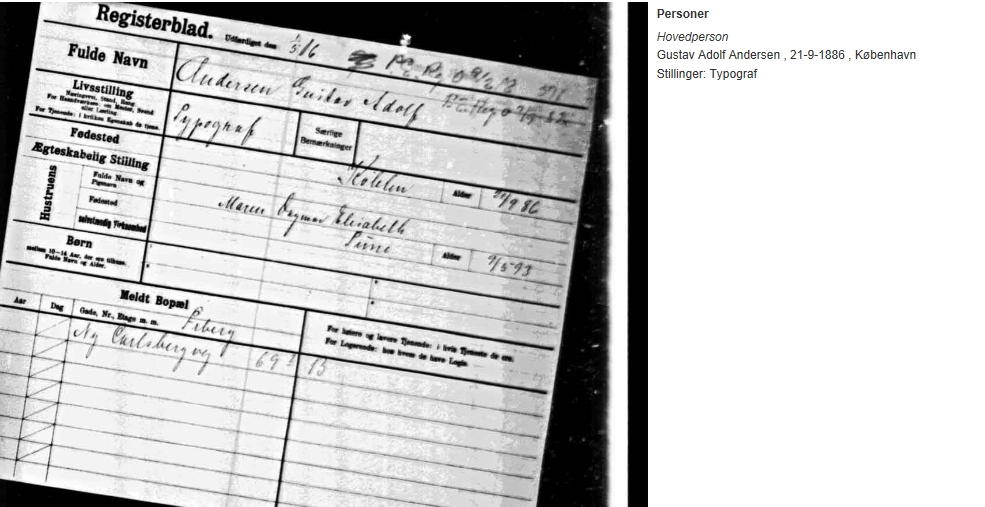 Registerblad.
Udfærdiget den 1/5 16
Fulde Navn
Andersen Gustav Adolf
Livsstilling
Næringsvej, Stand, Rang.
For Haandværkere: om Mester, Svend
eller Lærling.
For Tjenende: i hvilken Egenskab de tjene.
Typograf
Særlige
Bemærkninger
Fødested
Alder
21/9 86
Ægteskabelig Stilling
Hustruens
Fulde Navn og
Pigenavn
Maren Dagmar Elisabeth
Fødested
Alder
9/5 93
selvstændig Virksomhed
Børn
mellem 10–14 Aar, der ere tilhuse.
Fulde Navn og Alder.
Meldt Bopæl
Aar
Dag
Gade, Nr., Etage m. m.
For højere og lavere Tjenende: i hvis Tjeneste de ere.
For Logerende: hos hvem de have Logis.
Ny Carlsbergvej 69 B
Personer
Hovedperson
Gustav Adolf Andersen , 21-9-1886 , København
Stillinger: Typograf